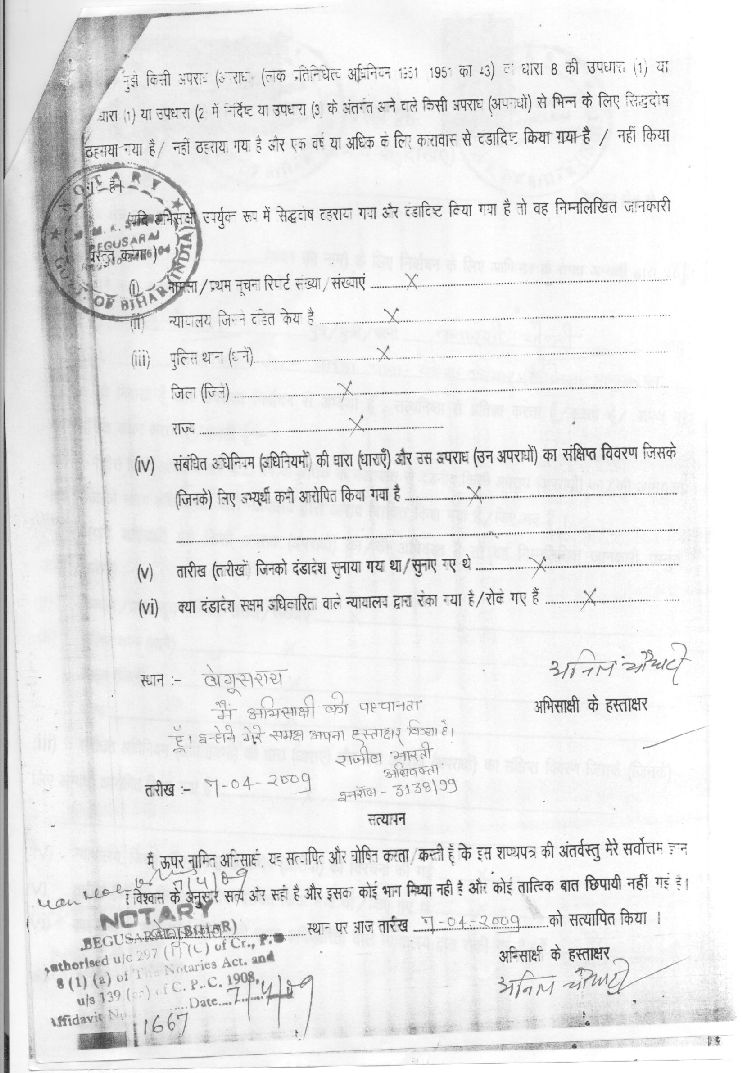 मुझे किसी अपराध (अपराधों) (लोक प्रतिनिधित्व अधिनियम 1951 1951 का 43) की धारा 8 की उपधारा (1) या
धारा (1) या उपधारा (2) में निर्दिष्ट या उपधारा (3) के अंतर्गत आने वाले किसी अपराध (अपराधों) से भिन्न के लिए सिद्धदोष
ठहराया गया है / नहीं ठहराया गया है और एक वर्ष या अधिक के लिए कारावास से दंडादिष्ट किया गया है / नहीं किया
गया है।
NOTARY
M. K.
BEGUSARAI
GOVT. OF BIHAR (INDIA)
(यदि अभिसाक्षी उपर्युक्त रूप में सिद्धदोष ठहराया गया और दंडादिष्ट किया गया है तो वह निम्नलिखित जानकारी
प्रस्तुत करेगा)
(i) मामला/प्रथम सूचना रिपोर्ट संख्या/संख्याएं ........ X ........
(ii) न्यायालय जिसने दंडित किया है ........ X ........
(iii) पुलिस थाना (थाने) ........ X ........
जिला (जिले) ........ X ........
राज्य ........ X ........
(iv) संबंधित अधिनियम (अधिनियमों) की धारा (धाराएँ) और उस अपराध (उन अपराधों) का संक्षिप्त विवरण जिसके
(जिनके) लिए अभ्यर्थी को आरोपित किया गया है ........ X ........
(v) तारीख (तारीखें) जिनको दंडादेश सुनाया गया था/सुनाए गए थे ........ X ........
(vi) क्या दंडादेश सक्षम अधिकारिता वाले न्यायालय द्वारा रोका गया है/रोके गए हैं ........ X ........
अनिल चौधरी
स्थान :- बेगूसराय
अभिसाक्षी के हस्ताक्षर
मैं अभिसाक्षी को पहचानता
हूँ। इन्होंने मेरे समक्ष अपना हस्ताक्षर किया है।
राजीव भारती
अधिवक्ता
इनरौल - 3138/99
तारीख :- 7-04-2009
सत्यापन
मैं ऊपर नामित अभिसाक्षी, यह सत्यापित और घोषित करता/करती हूँ कि इस शपथपत्र की अंतर्वस्तु मेरे सर्वोत्तम ज्ञान
7/4/09
विश्वास के अनुसार सत्य और सही है और इसका कोई भाग मिथ्या नहीं है और कोई तात्विक बात छिपायी नहीं गई है।
NOTARY
BEGUSARAI (BIHAR)
स्थान पर आज तारीख 7-04-2009 को सत्यापित किया ।
Authorised u/c 297 (1) (C) of Cr., P.
8 (1) (a) of The Notaries Act. and
u/s 139 of C. P. C. 1908,
Affidavit No. .... Date.... 7/4/09
1667
अभिसाक्षी के हस्ताक्षर
अनिल चौधरी